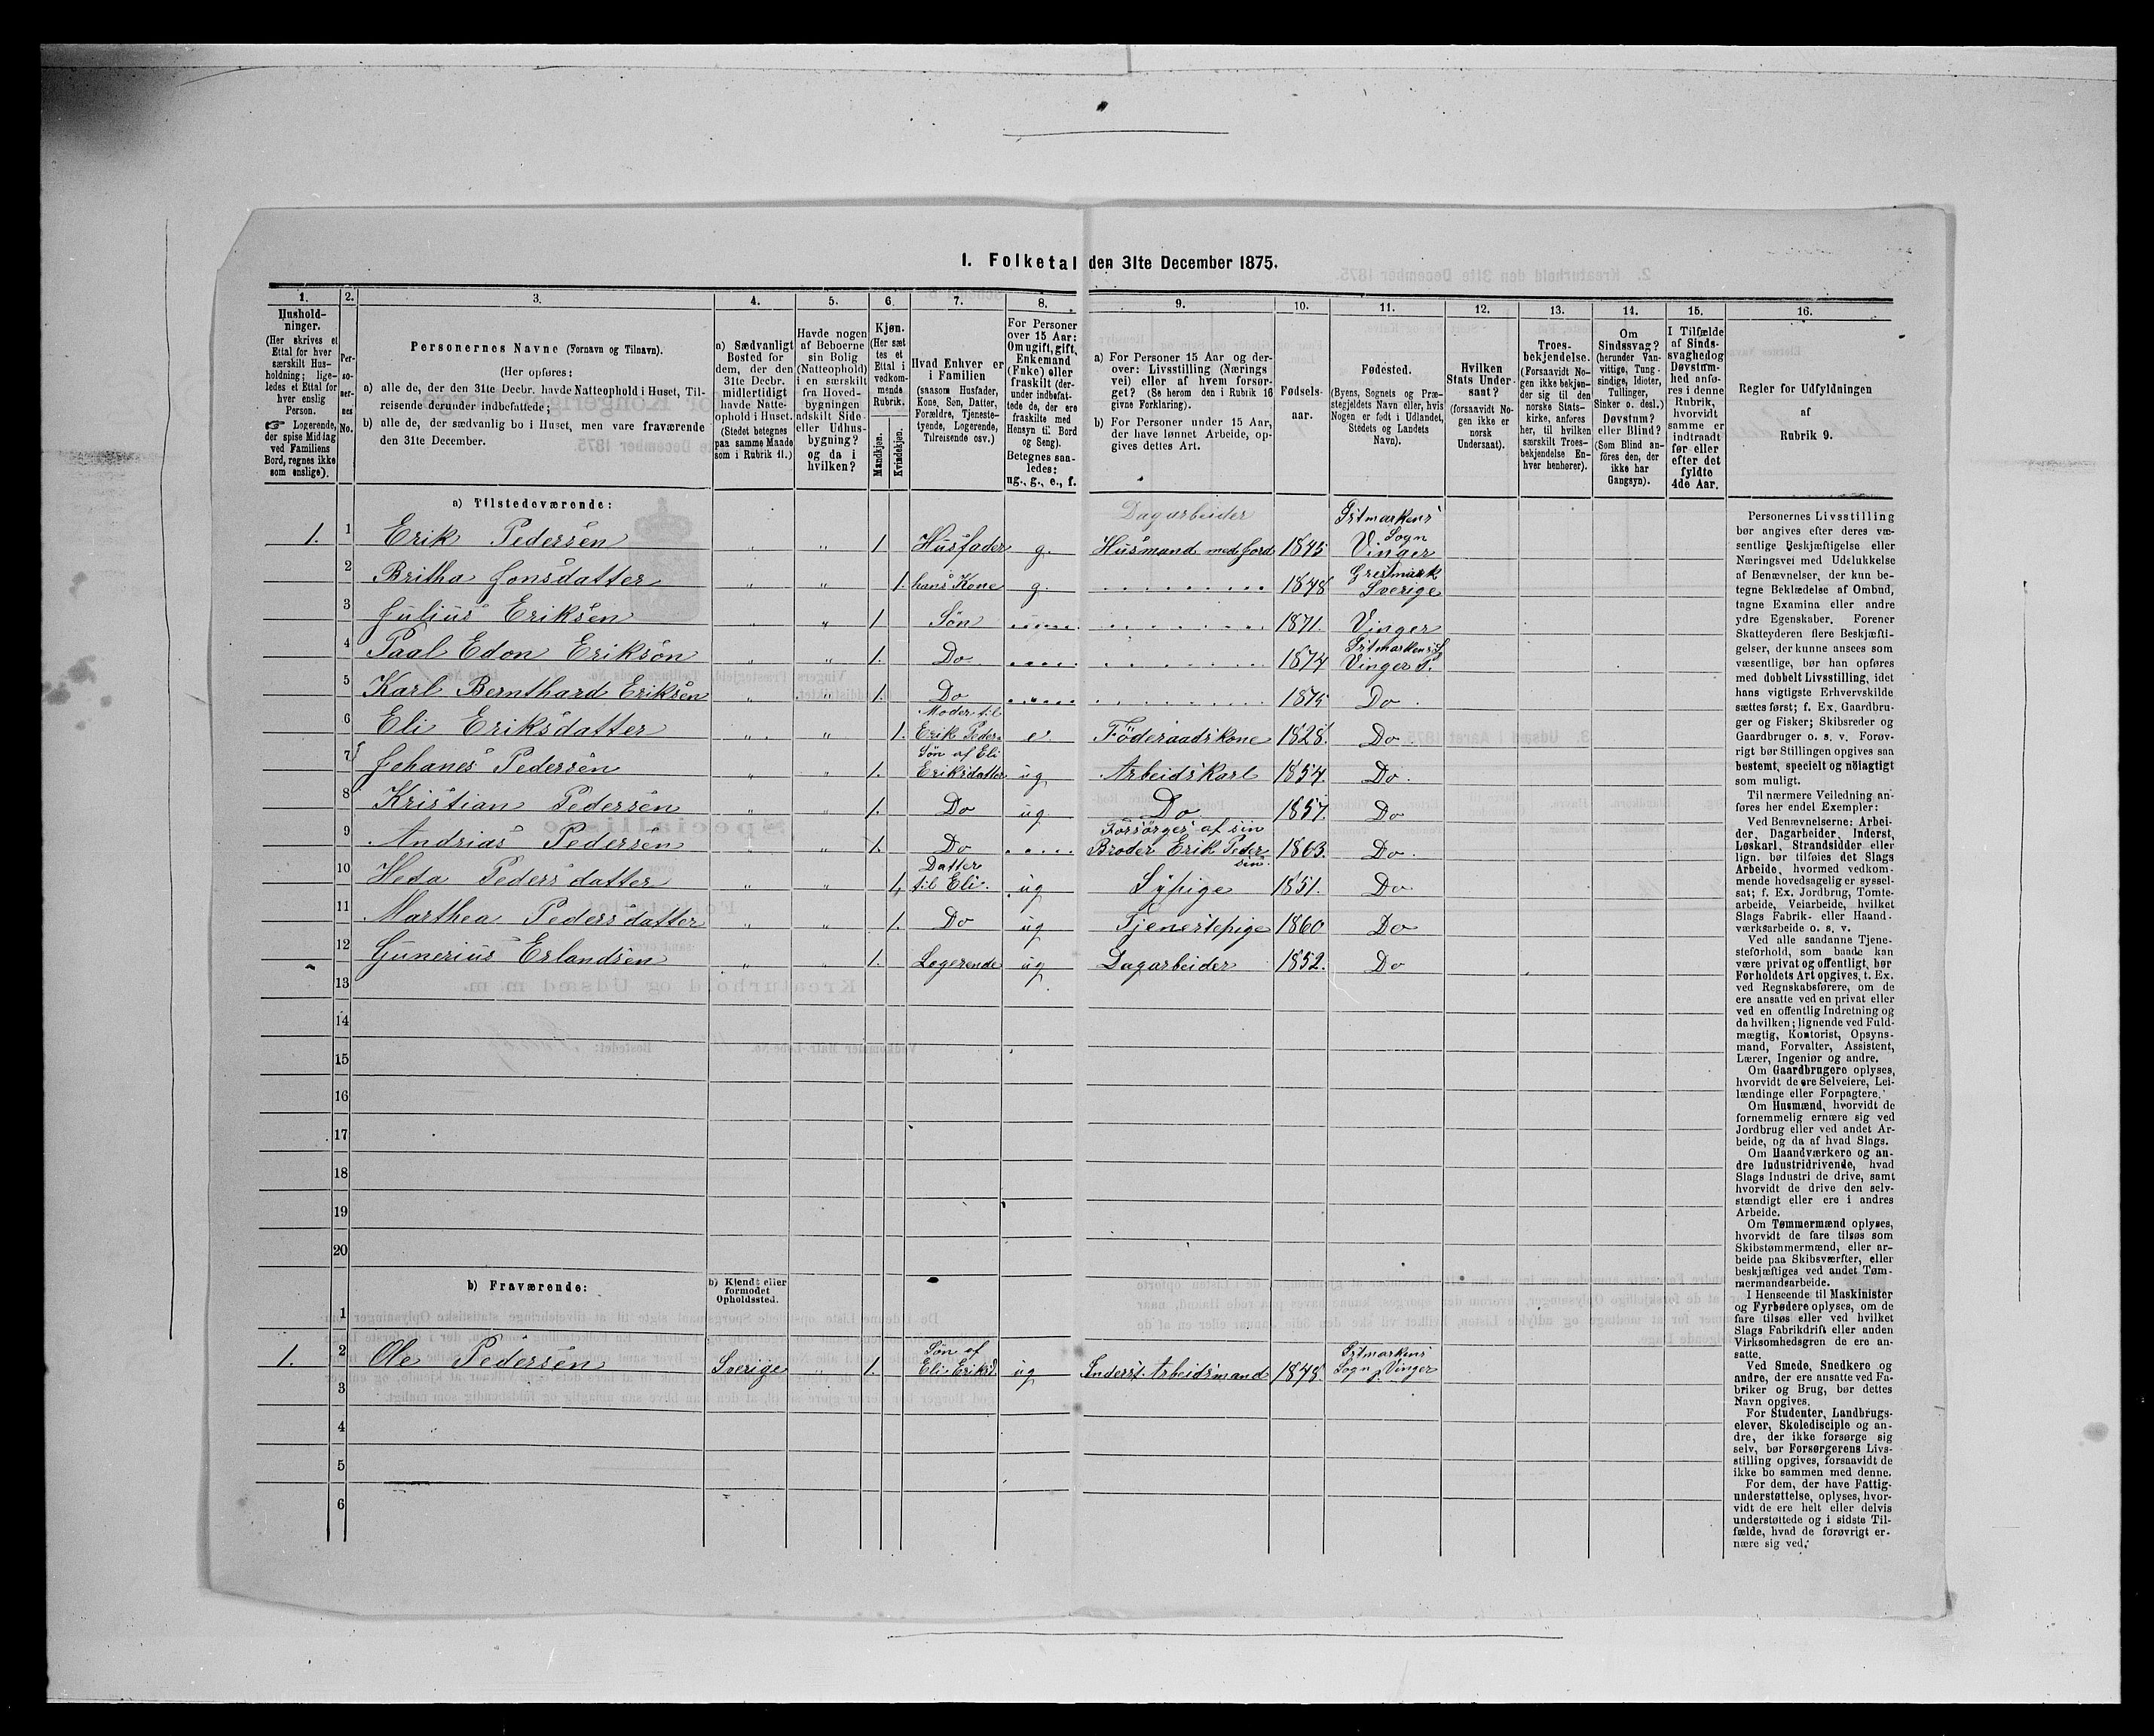 1. Folketal den 31te December 1875.
1. 2. 3. 4. 5. 6. 7. 8. 9. 10. 11. 12. 13. 14. 15. 16.
Husholdninger.
(Her skrives et
Ettal for hver
særskilt Hus-
holdning; lige-
ledes et Ettal for
hver enslig
Person.
☞ Logerende,
der spise Middag
ved Familiens
Bord, regnes ikke
som enslige).
Per-
so-
ner-
nes
No.
Personernes Navne (Fornavn og Tilnavn).
(Her opføres:
a) alle de, der den 31te Decbr. havde Natteophold i Huset, Til-
reisende derunder indbefattede;
b) alle de, der sædvanlig bo i Huset, men vare fraværende
den 31te December.
a) Sædvanligt
Bosted for
dem, der den
31te Decbr.
midlertidigt
havde Natte-
ophold i Huset.
(Stedet betegnes
paa samme Maade
som i Rubrik 11.)
Havde nogen
af Beboerne
sin Bolig
(Natteophold)
i en særskilt
fra Hoved-
bygningen
adskilt Side-
eller Udhus-
bygning?
og da i
hvilken?
Kjøn.
(Her sæt
tes et
Ettal i
vedkom-
mende
Rubrik.
Mandkjøn.
Kvindekjøn.
Hvad Enhver er
i Familien
(saasom Husfader,
Kone, Søn, Datter,
Forældre, Tjeneste-
tyende, Logerende,
Tilreisende osv.)
For Personer
over 15 Aar:
Om ugift, gift,
Enkemand
(Enke) eller
fraskilt (der-
under indbefat-
tede de, der ere
fraskilte med
Hensyn til Bord
og Seng).
Betegnes saa-
ledes:
ug., g., e., f.
a) For Personer 15 Aar og der-
over: Livsstilling (Nærings
vei) eller af hvem forsør-
get? (Se herom den i Rubrik 16
givne Forklaring).
b) For Personer under 15 Aar,
der have lønnet Arbeide, op-
gives dettes Art.
Fødsels-
aar.
Fødested.
(Byens, Sognets og Præ-
stegjeldets Navn eller, hvis
Nogen er født i Udlandet,
Stedets og Landets
Navn).
Hvilken
Stats Under-
saat?
(forsaavidt No-
gen ikke er
norsk
Undersaat).
Troes-
bekjendelse.
(Forsaavidt No-
gen ikke bekjen-
der sig til den
norske Stats-
kirke, anføres
her, til hvilken
særskilt Troes-
bekjendelse En-
hver henhører).
Om
Sindssvag?
(herunder Van-
vittige, Tung-
sindige, Idioter,
Tullinger,
Sinker o. desl.)
Døvstum?
eller Blind?
(Som Blind an-
föres den, der
ikke har
Gangsyn).
I Tilfælde
af Sinds-
svaghed og
Døvstum-
hed anfø-
res i denne
Rubrik,
hvorvidt
samme er
indtraadt
før eller
efter det
fyldte
4de Aar.
Regler for Udfyldningen
af
Rubrik 9.
a) Tilstedeværende:
Dagarbeider Istmarkens
1. 1 Erik Pedersen " " 1 Husfader g. Husmand med Jord 1845 Sogn Vinger
2 Britha Jonsdatter " " 1. hans Kone g. 1848 Grestmark Sverige
3 Julius Eriksen " " 1 Søn 1871. Vinger
4 Paal Edon Eriksøn " " 1. Do 1874 Istmarkens S Vinger P.
5 Karl Bernthard Eriksen " " 1. Do 1875 Do.
6 Eli Eriksdatter " " 1. Moder til Erik Peders e. Föderaadskone 1828. Do
7 Johanes Pedersen " " 1. Søn af Eli Eriksdatter ug Arbeidskarl 1854. Do.
8 Kristian Pedersen " " 1. Do ug Do 1857. Do
9 Andrias Pedersen " " 1. Do Forsörges af sin Broder Erik Peder sen. 1863. Do.
10 Heda Pedersdatter " " 1, Datter til Eli. ug Sypige 1851. Do
11 Marthea Pedersdatter " " 1. Do ug Tjenestepige 1860 Do
12 Gunerius Erlandsen " " 1. Logerende ug Dagarbeider 1852. Do
13
14
15
16
17
18
19
20
b) Fraværende:
b) Kjendt eller
formodet
Opholdssted.
1
1. 2 Ole Pedersen Sverige " 1. Søn af Eli Eriksd. ug Inderst. Arbeidsmand 1848. Istmarkens Sogn Vinger
3
4
5
6
Personernes Livsstilling
bør angives efter deres væ-
sentlige Beskjæftigelse eller
Næringsvei med Udelukkelse
af Benævnelser, der kun be-
tegne Beklædelse af Ombud,
tagne Examina eller andre
ydre Egenskaber. Forener
Skatteyderen flere Beskjæfti-
gelser, der kunne ansees som
væsentlige, bør han opføres
med dobbelt Livsstilling, idet
hans vigtigste Erhvervskilde
sættes først; f. Ex. Gaardbru-
ger og Fisker; Skibsreder og
Gaardbruger o. s. v. Forøv-
rigt bør Stillingen opgives saa
bestemt, specielt og nöiagtigt
som muligt.
Til nærmere Veiledning an-
føres her endel Exempler:
Ved Benævnelserne: Arbei-
der, Dagarbeider, Inderst,
Løskarl, Strandsidder eller
lign. bør tilføies det Slags
Arbeide, hvormed vedkom-
mende hovedsagelig er syssel-
sat; f. Ex. Jordbrug, Tomte-
arbeide, Veiarbeide, hvilket
Slags Fabrik- eller Haand-
værksarbeide o. s. v.
Ved alle saadanne Tjene-
steforhold, som baade kan
være privat og offentligt, bør
Forholdets Art opgives, t. Ex.
ved Regnskabsførere, om de
ere ansatte ved en privat eller
ved en offentlig Indretning og
da hvilken; lignende ved Fuld-
mægtig, Kontorist, Opsyns-
mand, Forvalter, Assistent,
Lærer, Ingeniør og andre.
Om Gaardbrugere oplyses,
hvorvidt de ere Selveiere, Lei-
lændinge eller Forpagtere.
Om Husmænd, hvorvidt de
fornemmelig ernære sig ved
Jordbrug eller ved andet Ar-
beide, og da af hvad Slags.
Om Haandværkere og an-
dre Industridrivende, hvad
Slags Industri de drive, samt
hvorvidt de drive den selv-
stændigt eller ere i andres
Arbeide.
Om Tømmermænd oplyses,
hvorvidt de fare tilsøs som
Skibstømmermænd, eller ar-
beide paa Skibsværfter, eller
beskjæftiges ved andet Tøm-
mermandsarbeide.
I Henseende til Maskinister
og Fyrbødere oplyses, om de
fare tilsøs eller ved hvilket
Slags Fabrikdrift eller anden
Virksomhedsgren de ere an-
satte.
Ved Smede, Snedkere og
andre, der ere ansatte ved Fa-
briker og Brug, bør dettes
Navn opgives.
For Studenter, Landbrugs-
elever, Skoledisciple og an-
dre, der ikke forsørge sig
selv, bør Forsørgerens Livs-
stilling opgives, forsaavidt de
ikke bo sammen med denne.
For dem, der have Fattig-
understøttelse, oplyses, hvor-
vidt de ere helt eller delvis
understøttede og i sidste Til-
fælde, hvad de forøvrigt er-
nære sig ved.